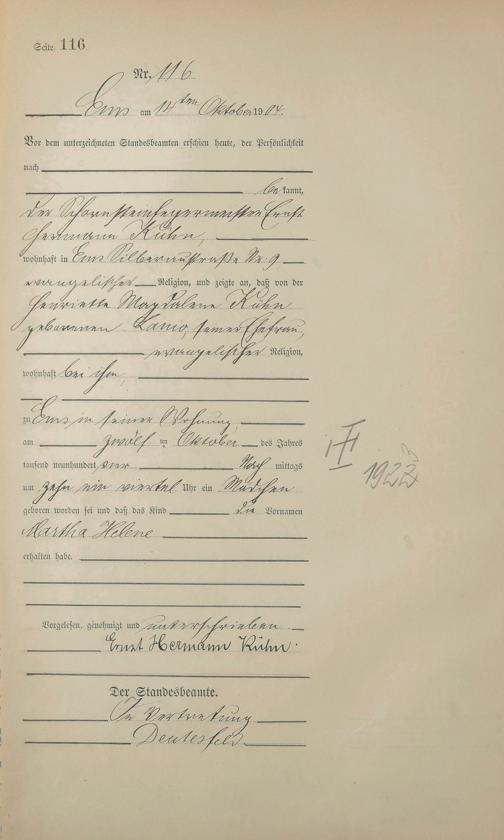 Seite 116
Nr. 116
Ems am 14ten Oktober 1904.
Vor dem unterzeichneten Standesbeamten erschien heute, der Persönlichkeit
nach
be kannt,
der Schornsteinfegermeister Ernst
Hermann Kühn,
wohnhaft in Ems Silberaustraße Nr. 9
evangelischer Religion, und zeigte an, daß von der
Henriette Magdalene Kühn
geborenen seiner Ehefrau,
evangelischer Religion,
wohnhaft bei ihm,
zu Ems in seiner Wohnung,
am zwölf ten Oktober des Jahres
tausend neunhundert vier Nach mittags
um zehn ein viertel Uhr ein Mädchen
geboren worden sei und daß das Kind die Vornamen
Martha Helene
erhalten habe.
Vorgelesen, genehmigt und unterschrieben
Ernst Hermann Kühn.
Der Standesbeamte.
In Vertretung
1922
3